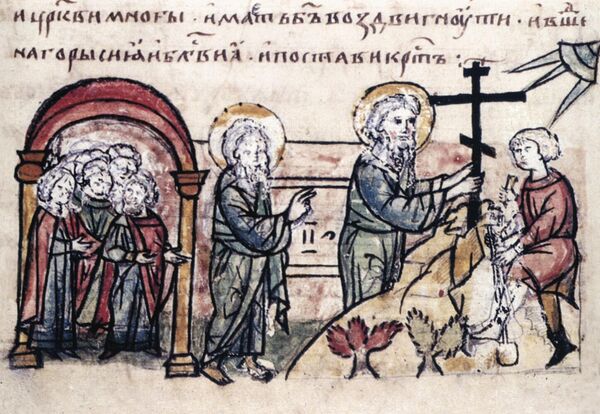 и црк҃ви многы · имать б҃ъ воздвигноути · и вшеⷣ
на горы сиꙗ и бл҃ви ꙗ · и постави крⷭ҇тъ :